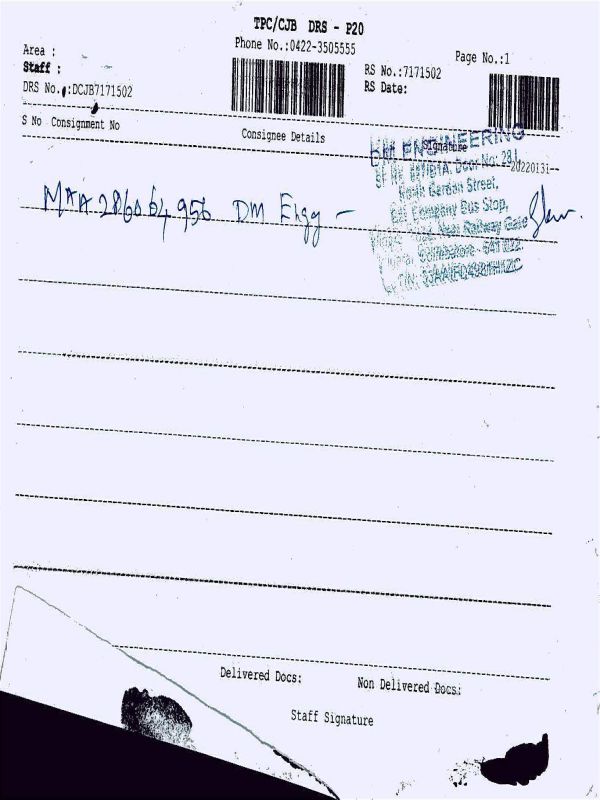 TPC/CJB DRS - P20
Phone No.:0422-3505555
Page No.:1
Area :
Staff :
DRS No. :DCJB7171502
RS No.:7171502
RS Date:
S No Consignment No
Consignee Details
Signature
20220131
MAA286064956 DM Engg -
DM ENGINEERING
Door No: 281,
Garden Street,
Company Bus Stop,
Near Railway Gate
Coimbatore - 641 022.
Delivered Docs:
Non Delivered Docs:
Staff Signature